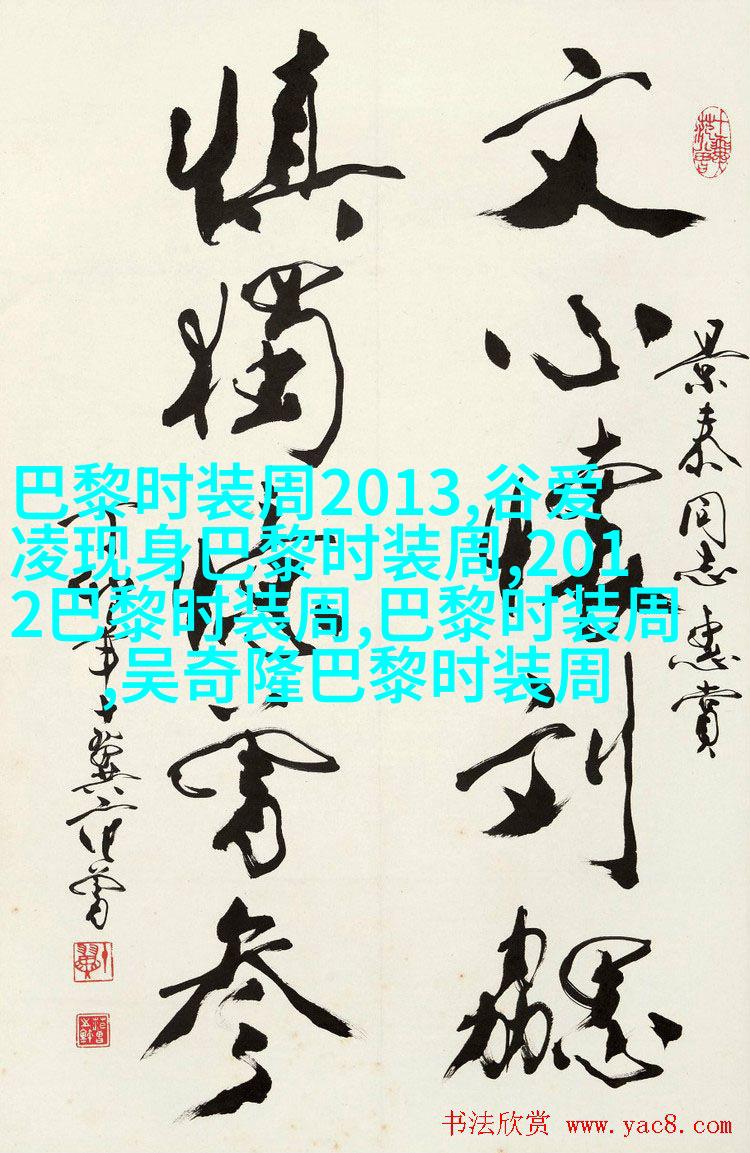 景泰同志惠賞
文心刘勰
慎獨曾參
十翼范曾
巴黎时装周2013,谷爱
凌现身巴黎时装周,201
2巴黎时装周,巴黎时装周
,吴奇隆巴黎时装周
书法欣赏 www.yac8.com